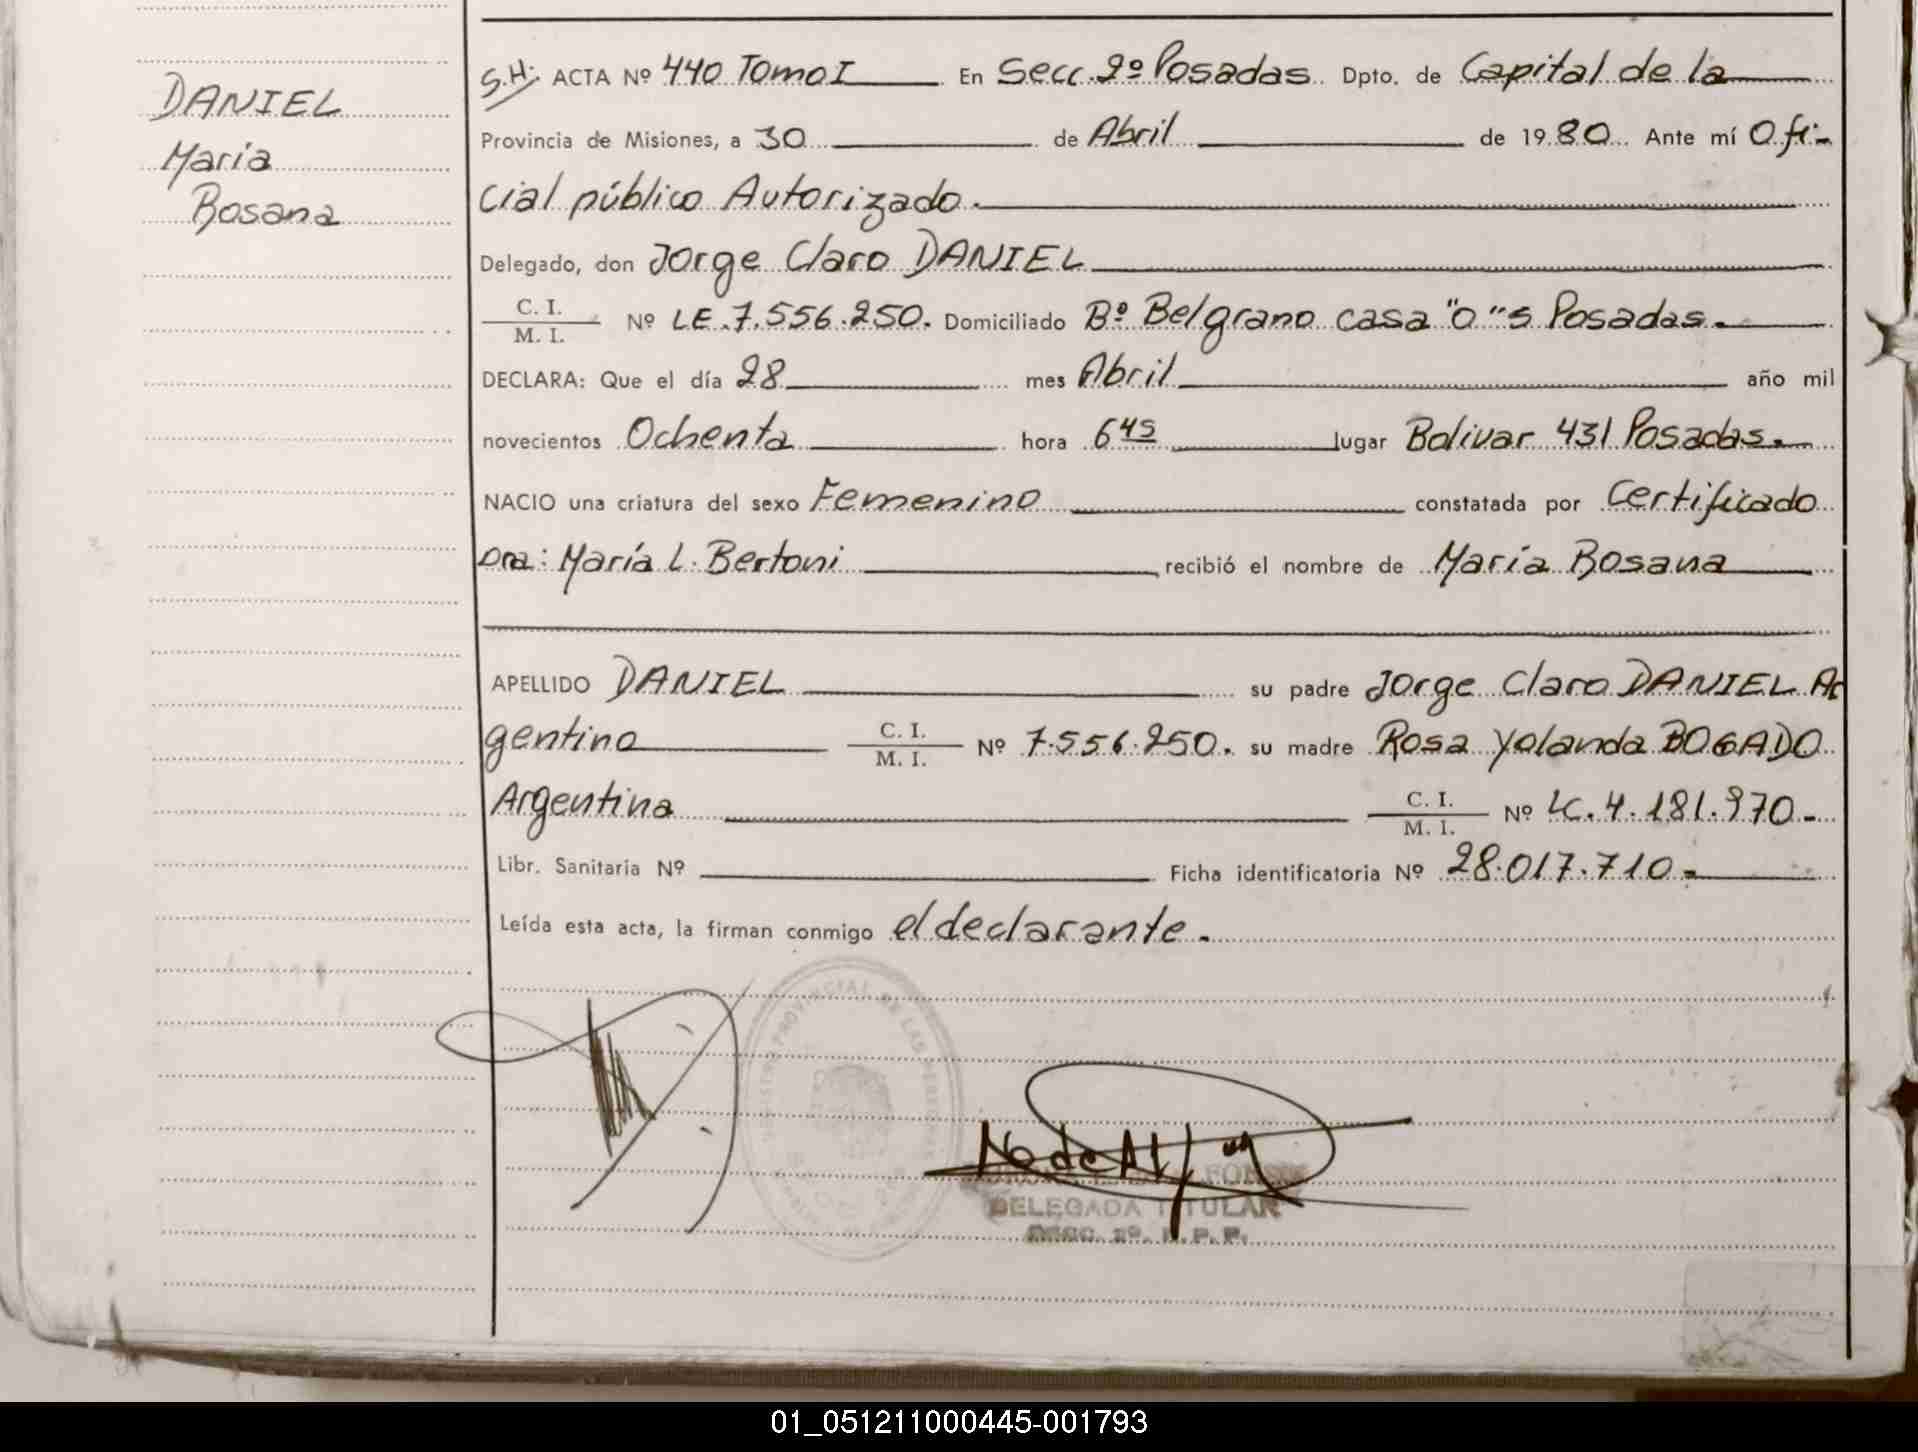 DANIEL
María
Rosana
S.H: ACTA Nº 440 Tomo I En Secc. 2º Posadas Dpto. de Capital de la
Provincia de Misiones, a 30 de Abril de 1980 Ante mí Ofi-
cial público Autorizado.
Delegado, don Jorge Claro DANIEL
C. I.
M. I. Nº LE.7.556.250. Domiciliado Bº Belgrano casa "0"5 Posadas.
DECLARA: Que el día 28 mes Abril año mil
novecientos Ochenta hora 6 45 lugar Bolivar 431 Posadas.
NACIO una criatura del sexo Femenino constatada por Certificado
Dra: María L. Bertoni recibió el nombre de María Rosana
APELLIDO DANIEL su padre Jorge Claro DANIEL Ar
gentino C. I.
M. I. Nº 7.556.250. su madre Rosa Yolanda BOGADO
Argentina C. I.
M. I. Nº LC.4.181.970-
Libr. Sanitaria Nº Ficha identificatoria Nº 28.017.710-
Leída esta acta, la firman conmigo el declarante.
REGISTRO PROVINCIAL DE LAS PERSONAS
DELEGADA TITULAR
SECC. 2º. R. P. P.
01_051211000445-001793